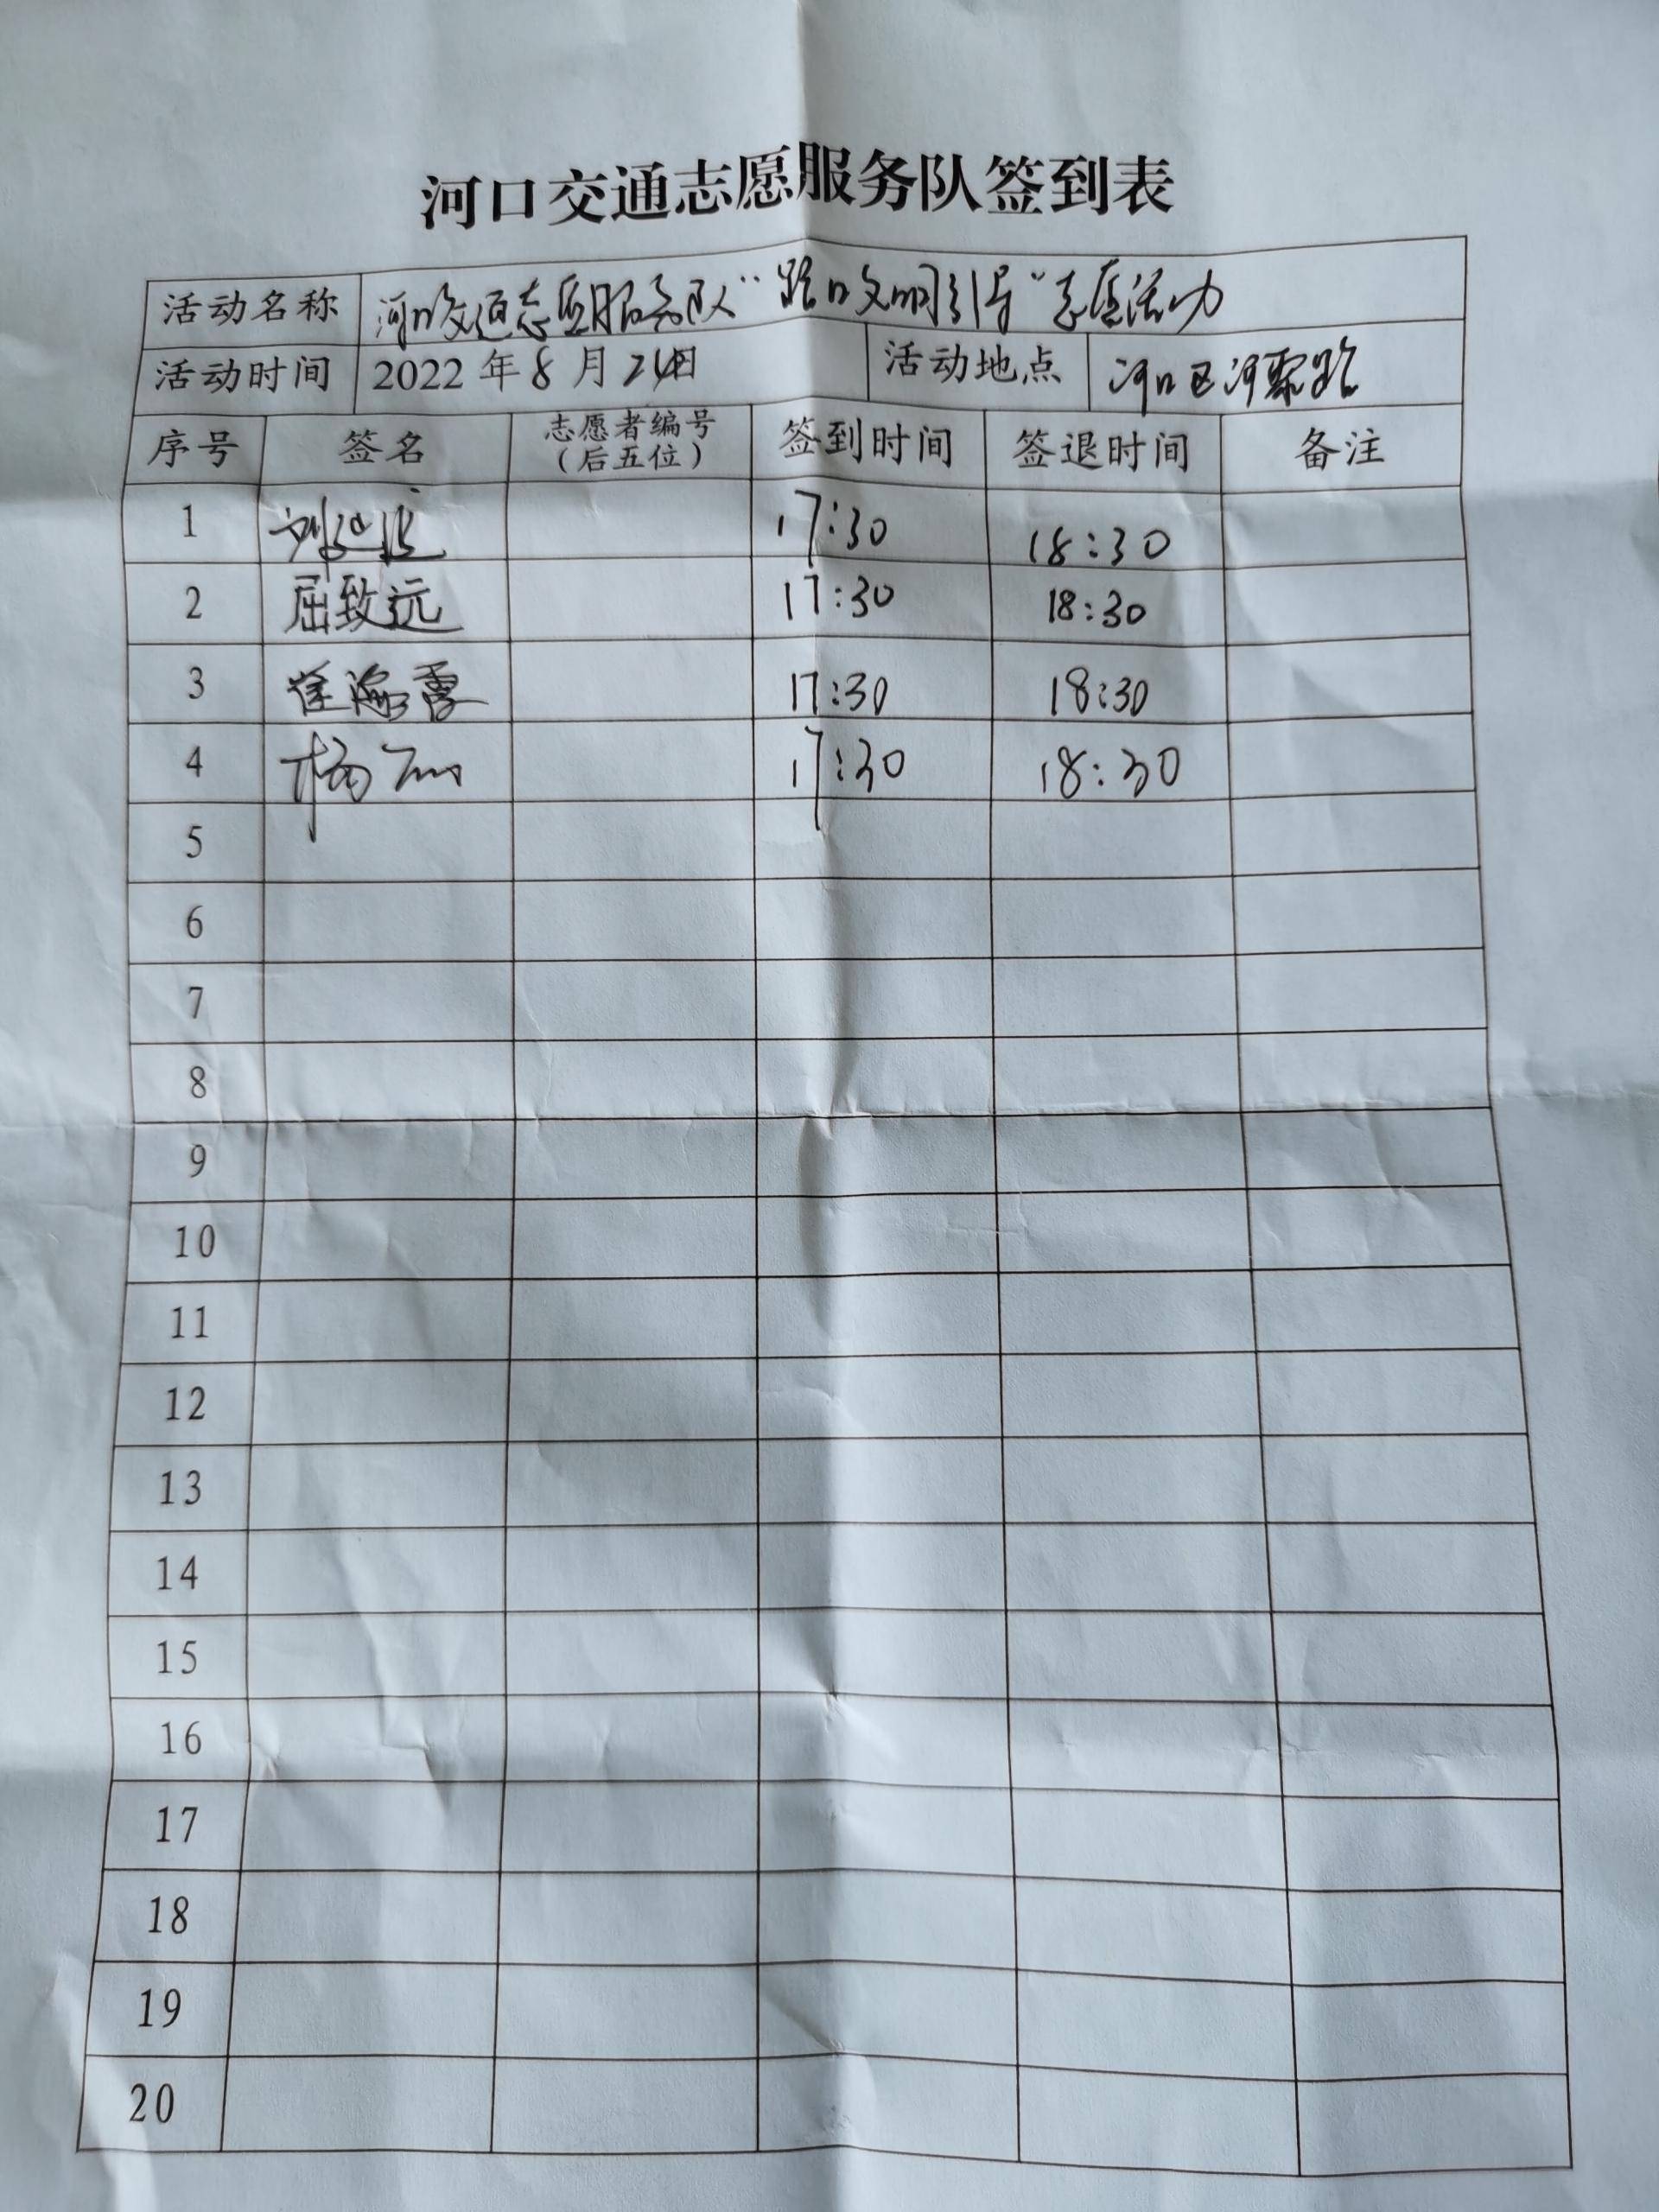 河口交通志愿服务队签到表
活动名称 河口交通志愿服务队“路口文明引导”志愿活动
活动时间 2022年8月24日 活动地点 河口区河聚路
序号 签名 志愿者编号（后五位） 签到时间 签退时间 备注
1 17:30 18:30
2 屈致远 17:30 18:30
3 徐海霞 17:30 18:30
4 杨 17:30 18:30
5
6
7
8
9
10
11
12
13
14
15
16
17
18
19
20